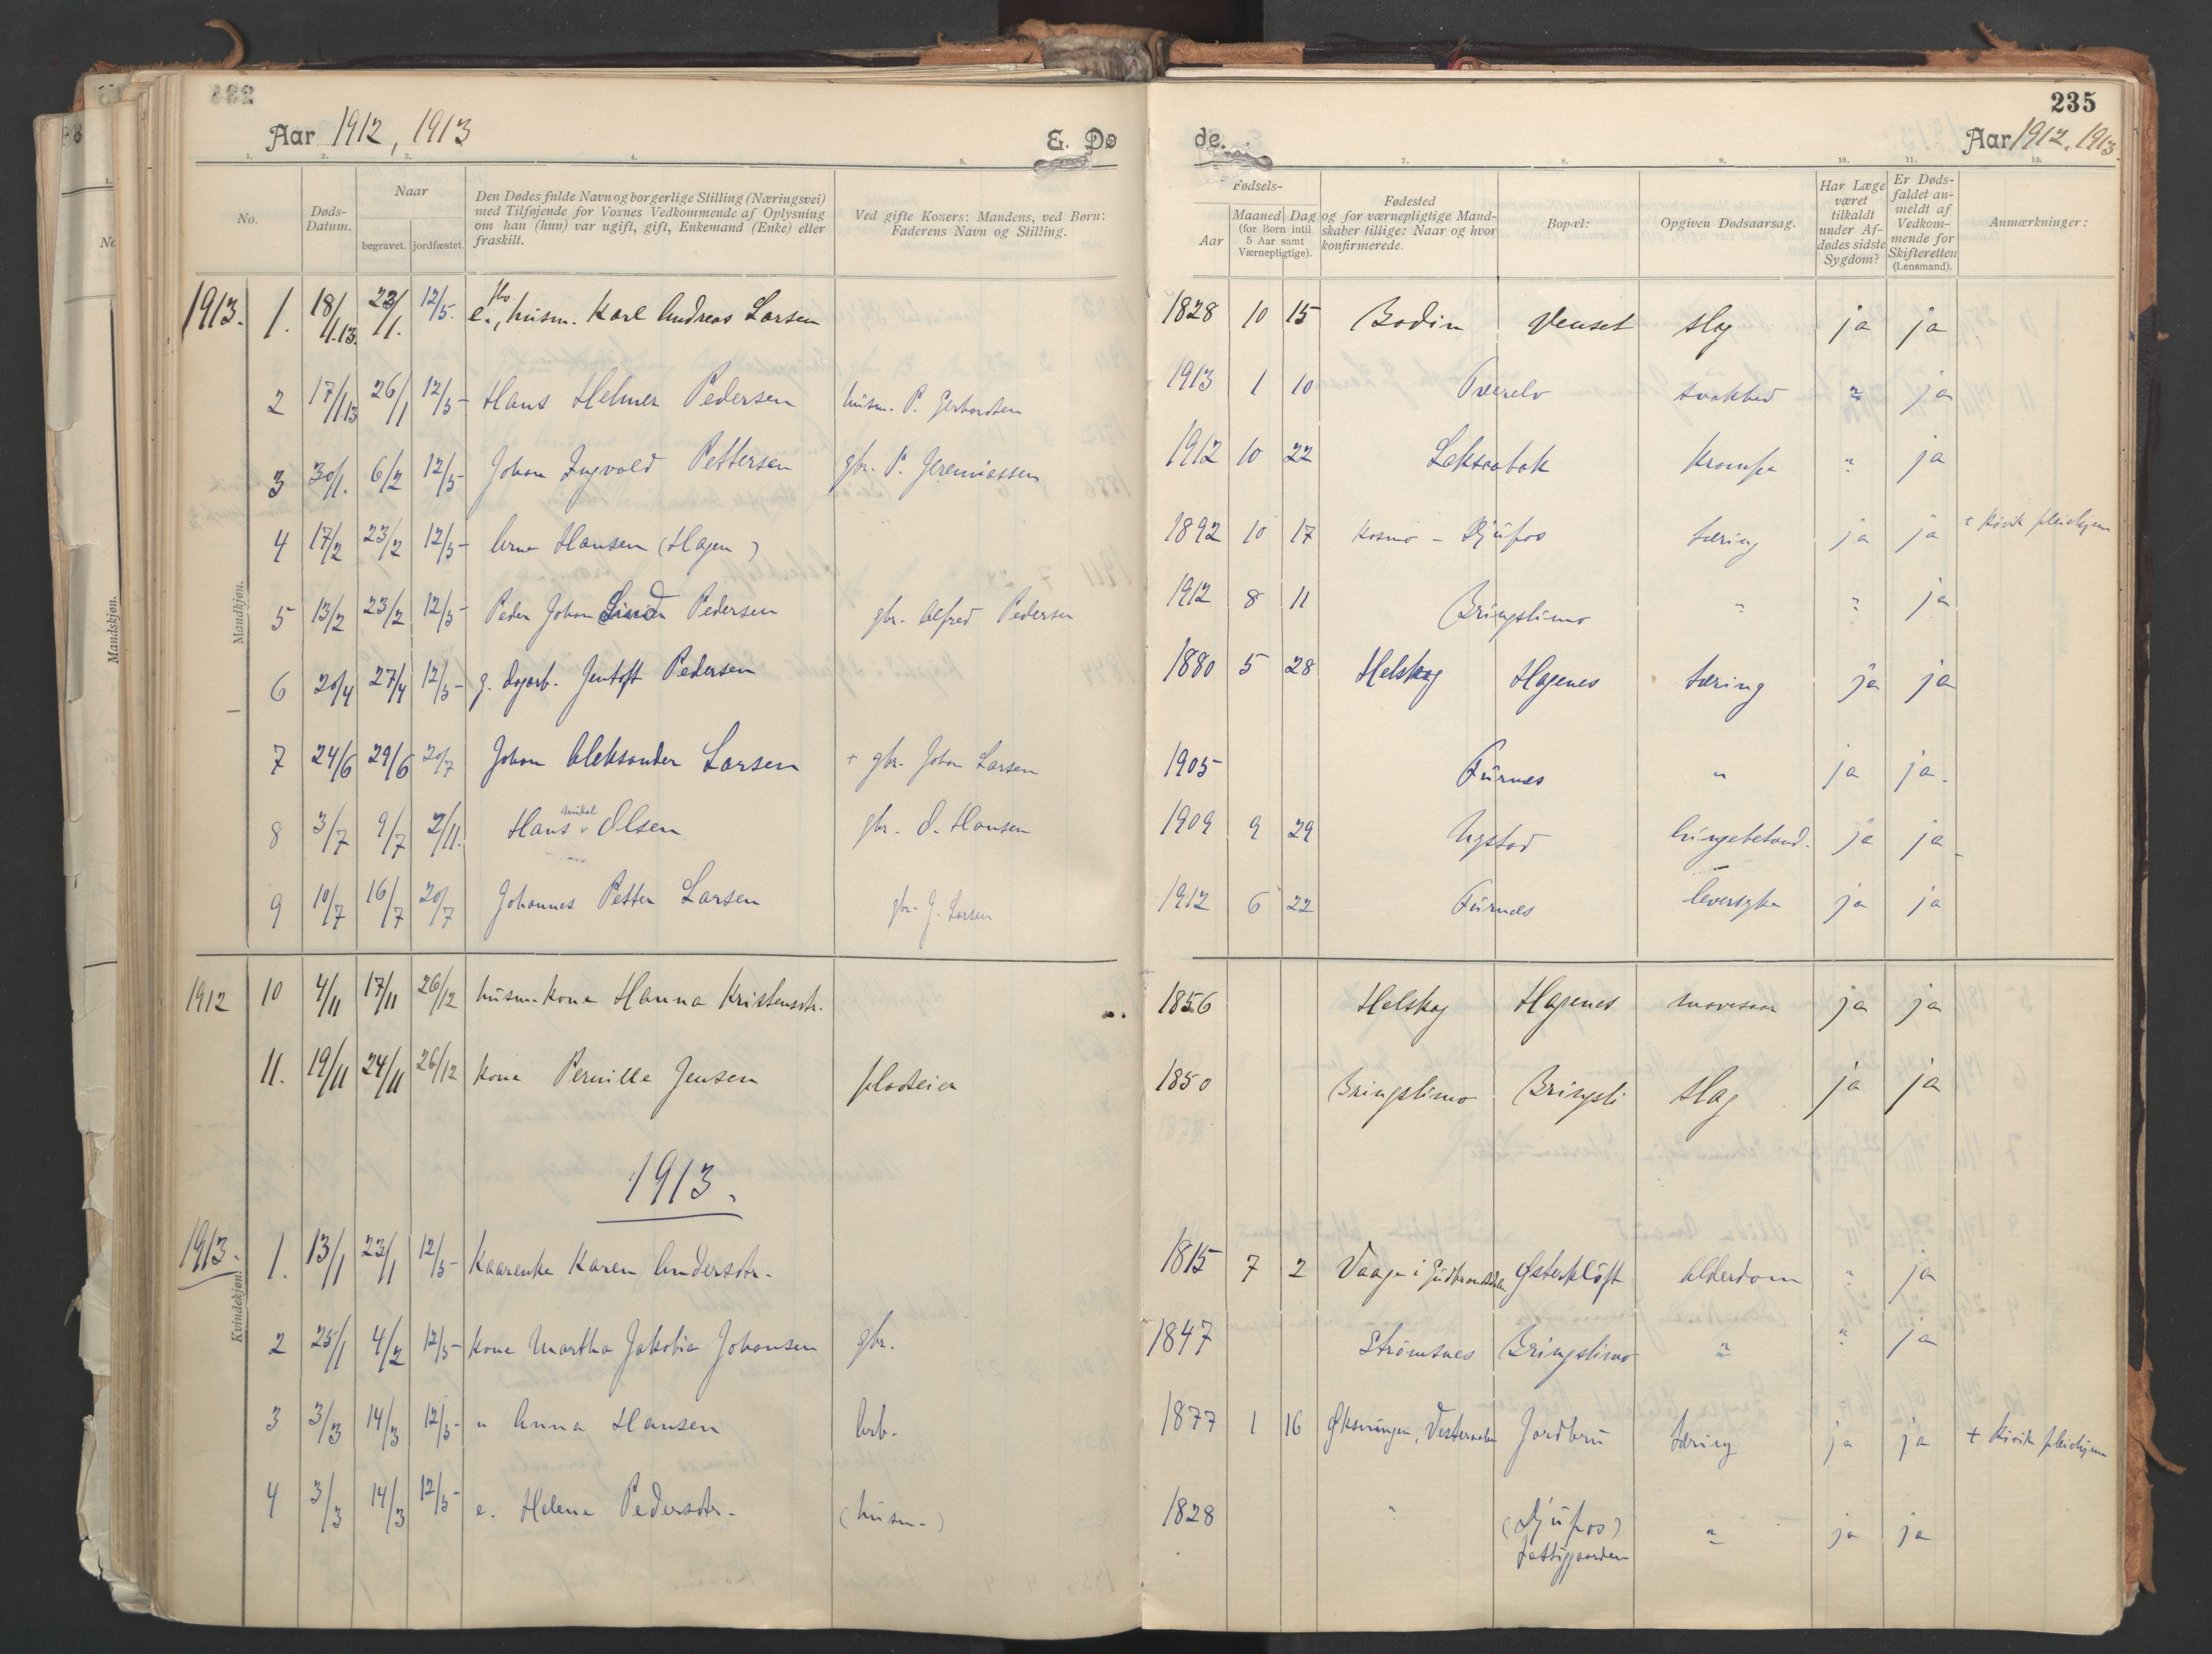 235
Aar 1912, 1913
E. Dø
de.
Aar 1912, 1913
1. 2. 3. 4. 5.
7. 8. 9. 10. 11. 12.
No.
Døds-Datum.
Naar
begravet. jordfæstet.
Den Dødes fulde Navn og borgerlige Stilling (Næringsvei)
med Tilføjende for Voxnes Vedkommende af Oplysning
om han (hun) var ugift, gift, Enkemand (Enke) eller
fraskilt.
Ved gifte Koners: Mandens, ved Børn:
Faderens Navn og Stilling.
Fødsels-
Aar
Maaned Dag
(for Børn intil
5 Aar samt
Værnepligtige).
Fødested
og for værnepligtige Mand-
skaber tillige: Naar og hvor
konfirmerede.
Bopæl:
Opgiven Dødsaarsag.
Har Læge
været
tilkaldt
under Af-
dødes sidste
Sygdom?
Er Døds-
faldet an-
meldt af
Vedkom-
mende for
Skifteretten
(Lensmand).
Anmærkninger:
Mandkjøn.
1913. 1. 18/1.13. 23/1. 12/5. e., husm. Karl Andreas Larsen 1828 10 15 Bodin Venset slag ja ja
2 17/1.13 26/1 12/5- Hans Helmer Pedersen husm. P. Gerhardsen 1913 1 10 Tverelv svakhed " ja
3 30/1. 6/2 12/5- Johan Ingvald Pettersen gbr. P. Jeremiassen 1912 10 22 krampe " ja
4 17/2 23/2 12/5- Arne Hansen (Hagen) 1892 10 17 Kosmo - Djupos tæring ja ja Kivik pleiehjem
5 13/2 23/2 12/5- Peder Johan Pedersen gbr. Alfred Pedersen 1912 8 11 Bringslimo " " ja
6 20/4 27/4 12/5- g. dagarb. Jentoft Pedersen 1880 5 28 Helskog Hagenes tæring ja ja
7 24/6 29/6 20/7 Johan Aleksander Larsen + gbr. Johan Larsen 1905 Furnes " ja ja.
8 3/7 9/7 2/11. Hans Mikal Olsen gbr. O. Hansen 1909 9 29 Nystad lungebetænd. ja ja
9 10/7 16/7 20/7 Johannes Petter Larsen gbr. J. Larsen 1912 6 22 Furnes leversyke ja ja
1912 10 4/11 17/11 26/12 husm. kone Hanna Kristensdtr. 1856 Helskog Hagenes mavesaar ja ja
11. 19/11 24/11 26/12 kone Pernille Jensen pladseier 1850 Bringslimo Bringsli slag ja ja
1913.
Kvindekjøn.
1913. 1. 13/1 23/1 12/5- Kaarenke Karen Andersdtr. 1815 7 2 Vaage i Gudbrandsdalen Østerkløft Alderdom " ja
2 25/1 4/2 12/5- kone Martha Jakobia Johansen gbr. 1847 Strømsnes Bringslimo " " ja
3 3/3 14/3 12/5- " Anna Hansen arb. 1877 1 16 Øksningen, Vesteraalen Jordbru tæring ja ja + Kivik pleiehjem
4 3/3 14/3 12/5- e. Helene Pedersdtr. (husm.) 1828 " (Djupos) " ja ja
Fattiggaarden
Mandskjøn.